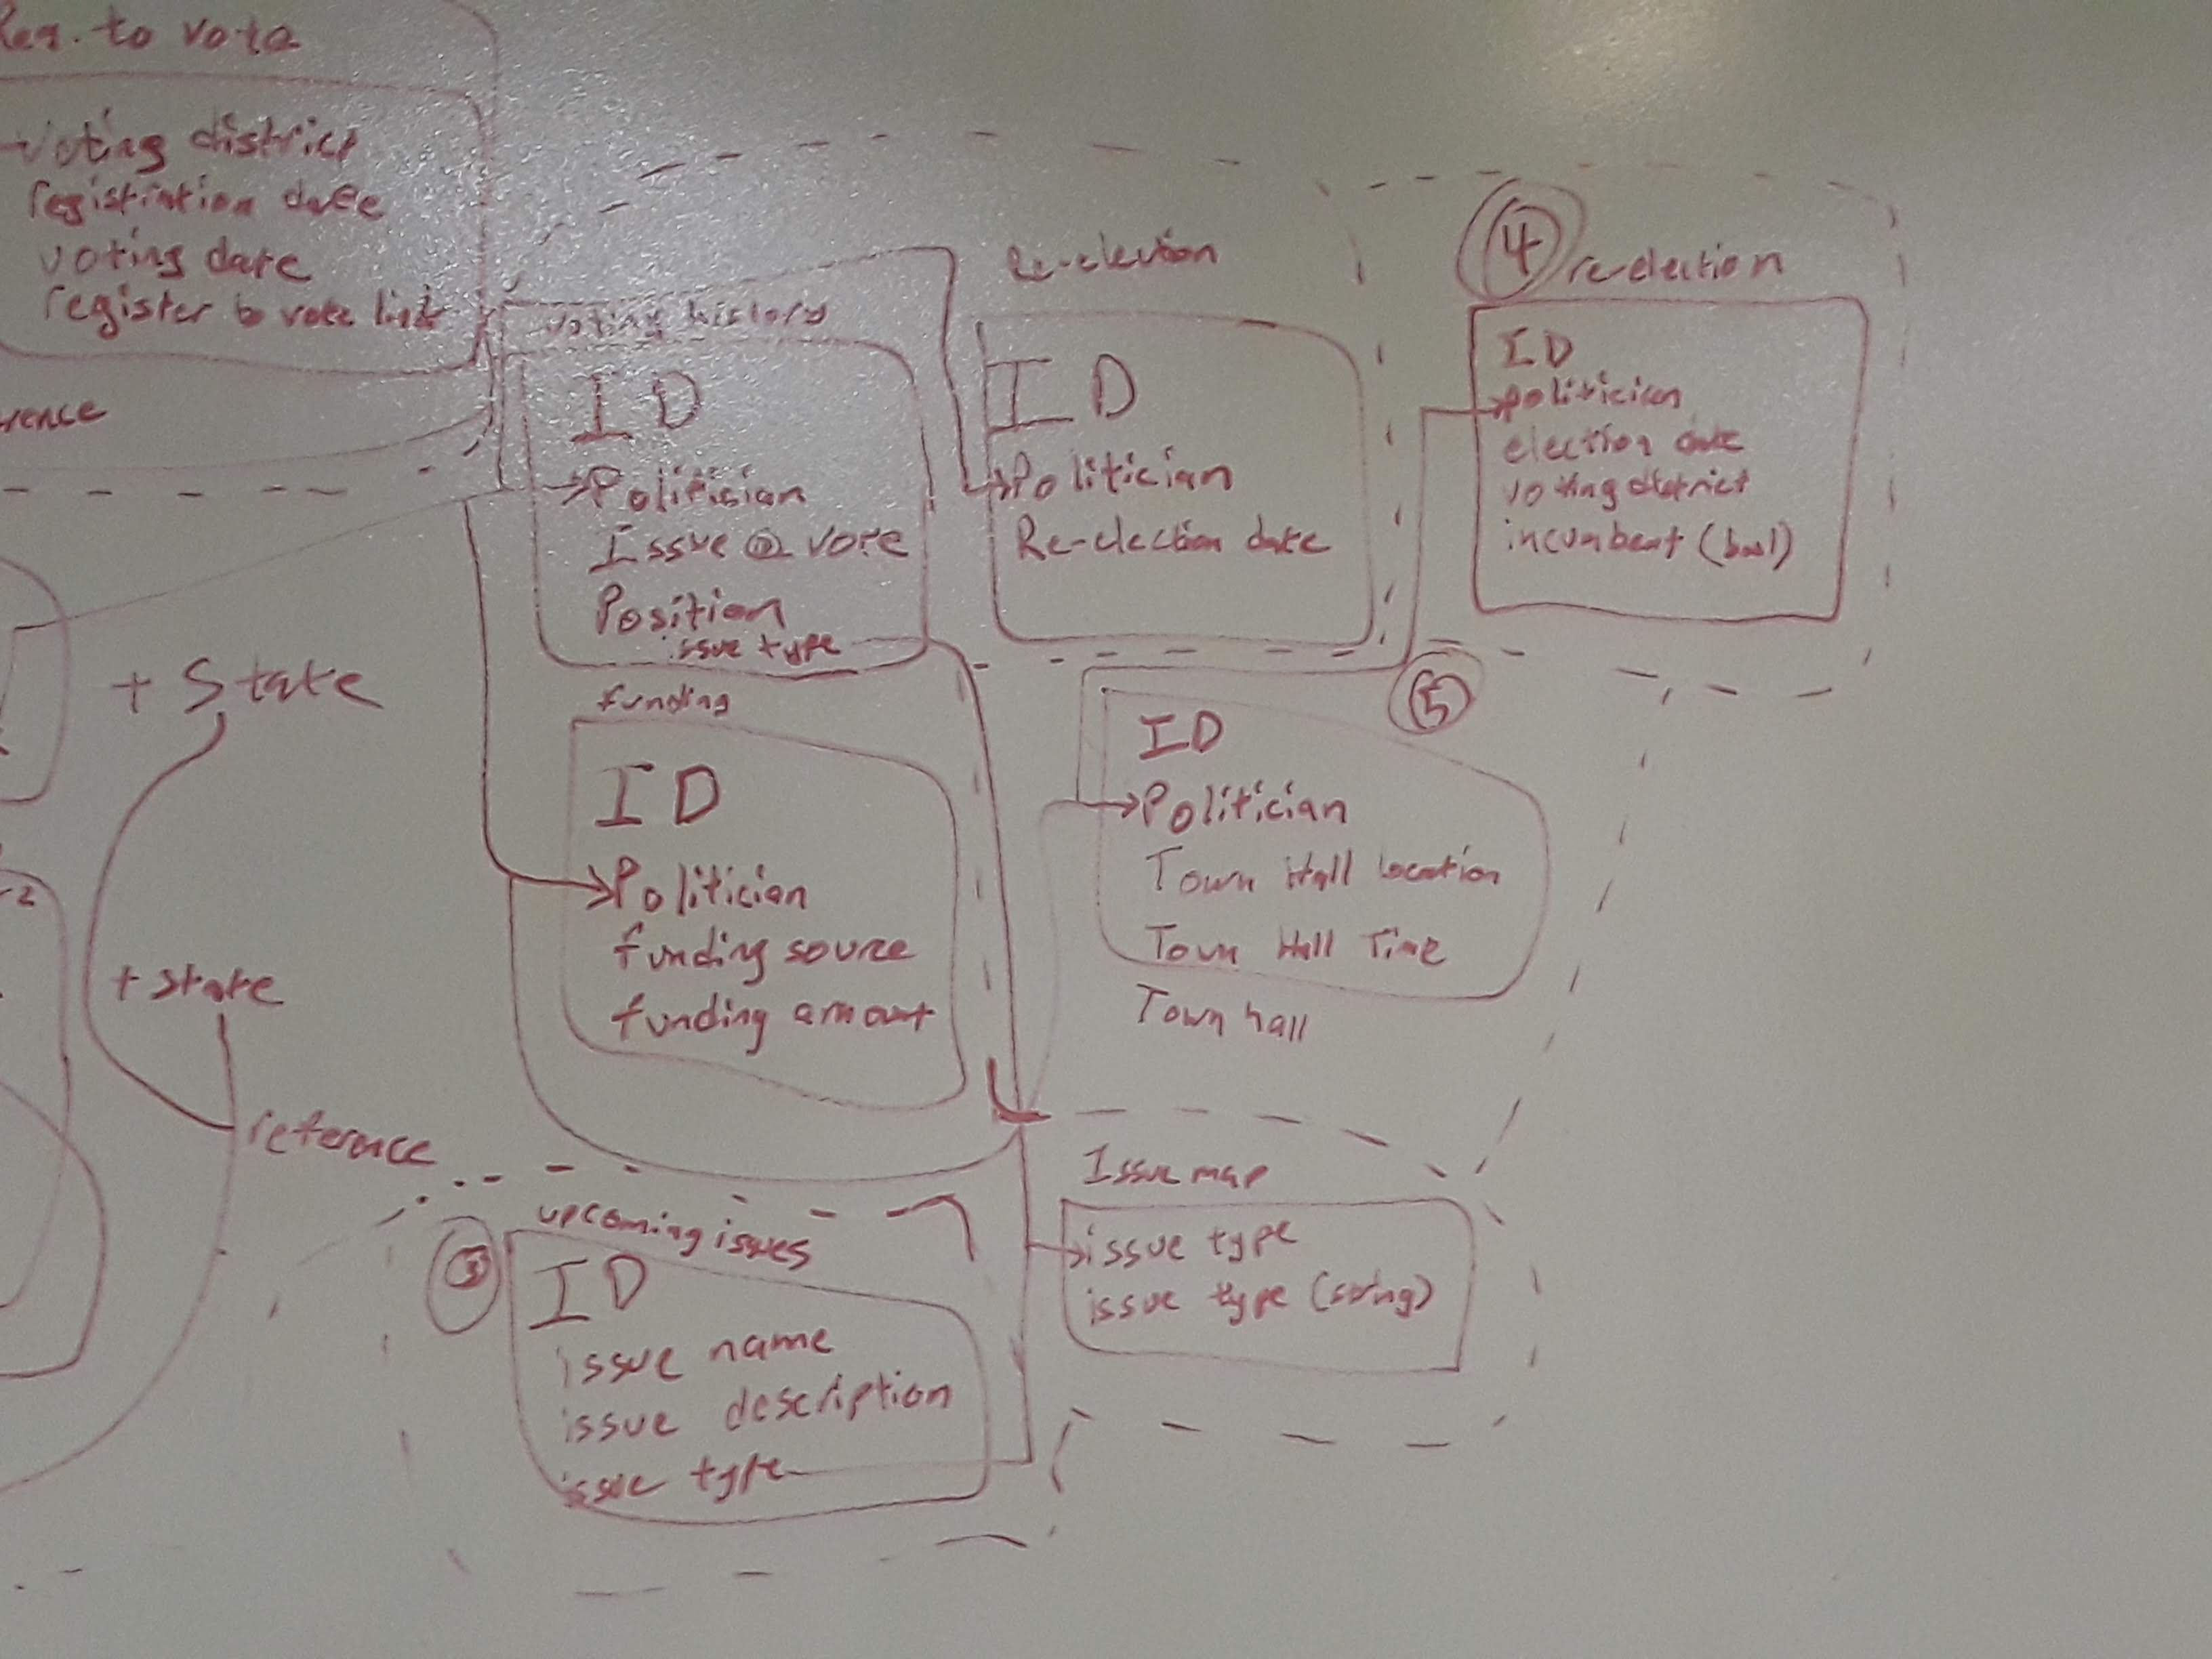 Reg. to vote
voting district
registration date
voting date
register to vote link
voting history
ID
Politician
Issue @ vote
Position
issue type
Re-election
ID
Politician
Re-election date
4
re-election
ID
politician
election date
voting district
incumbent (bool)
+ State
funding
ID
Politician
funding source
funding amount
5
ID
Politician
Town Hall Location
Town Hall Time
Town hall
+ state
reference
3
upcoming issues
ID
issue name
issue description
issue type
Issue map
issue type
issue type (string)